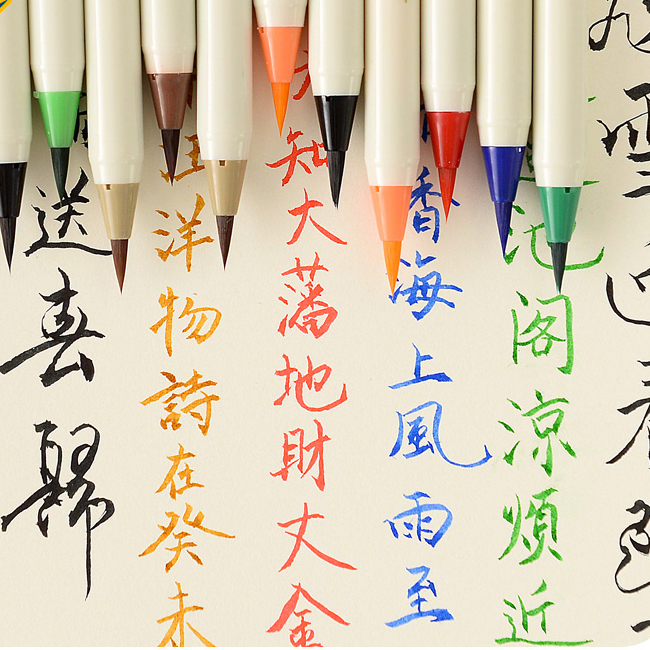 雪迎春
池阁涼煩近
香海上風雨至
知大藩地財丈金
洋物詩在癸未
送喜歸